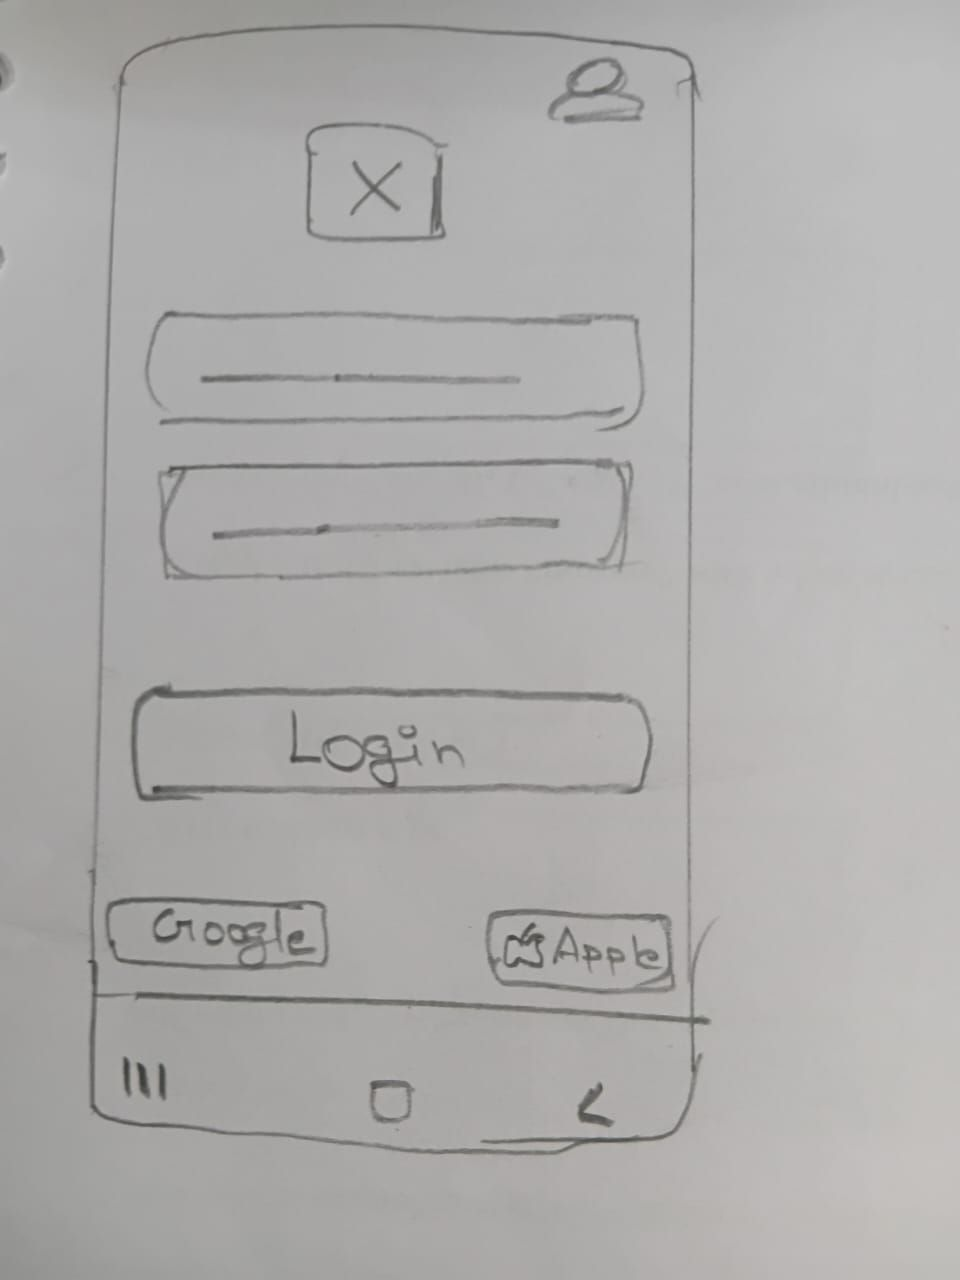 X
Login
Google
Apple